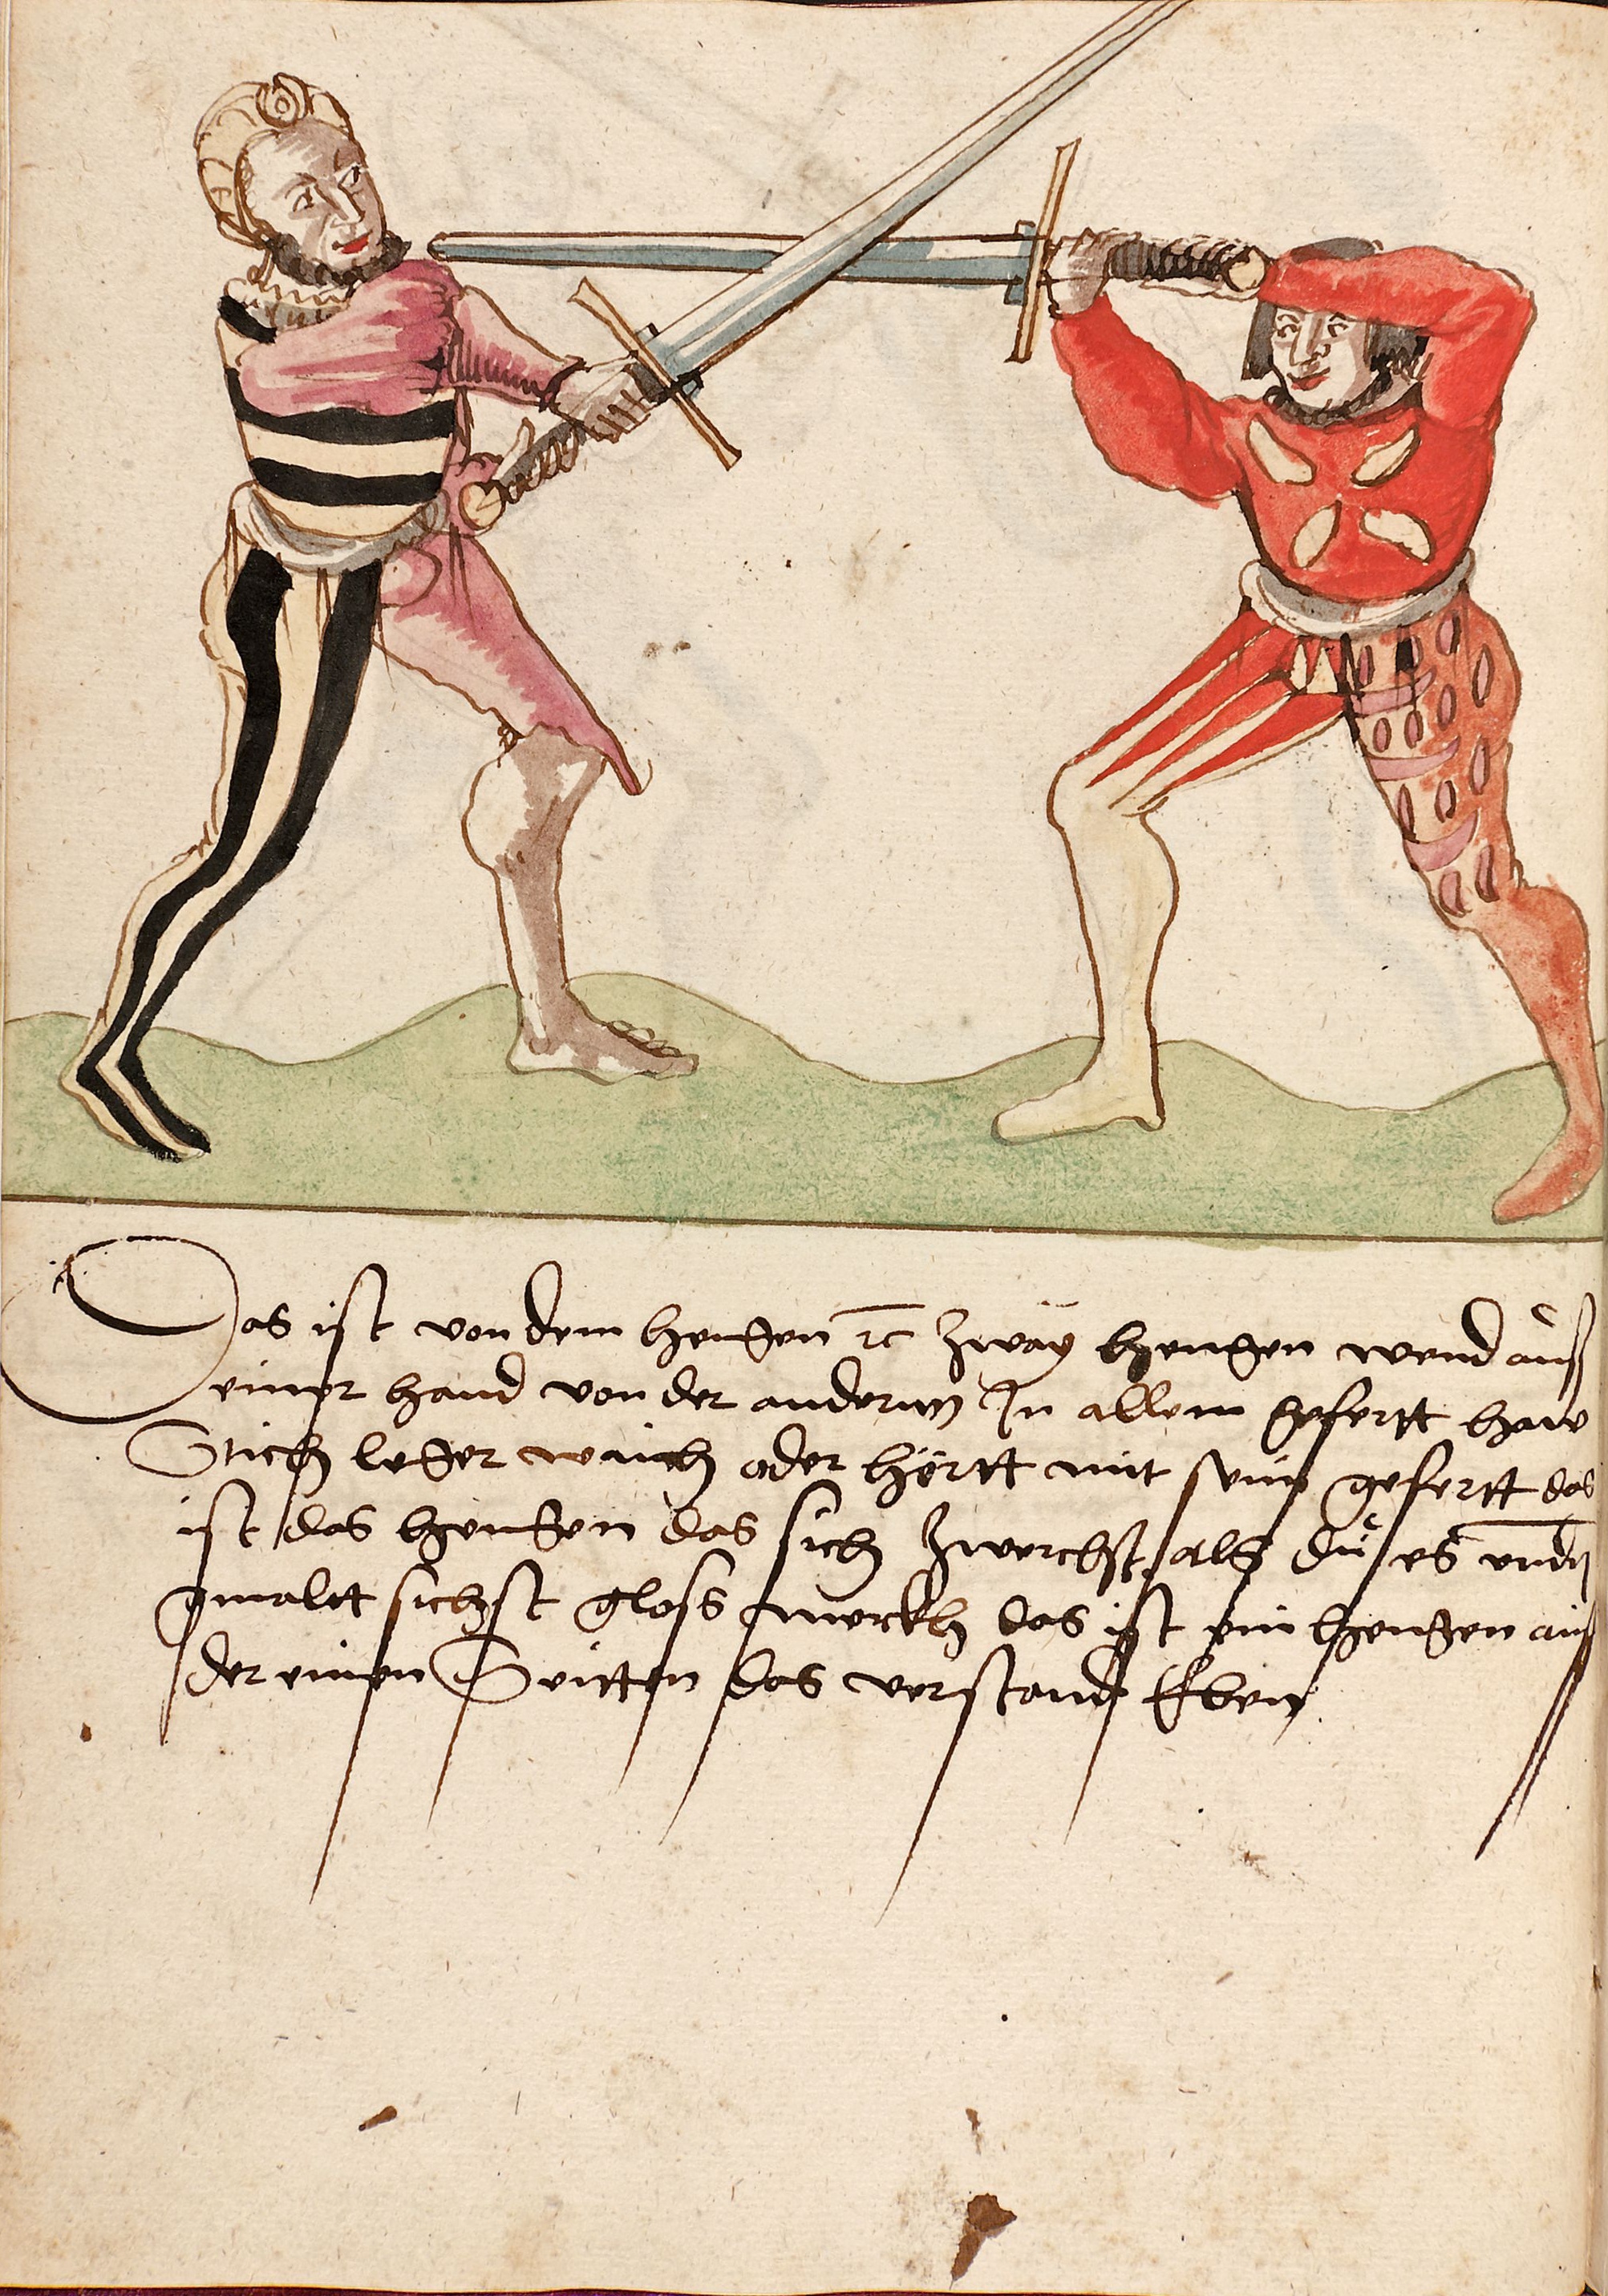 Das ist von dem hengen ꝛc Zway hengen wend auß
einer hand von der anderen In allem gefertt haw
Stich leger waich oder hörtt mit seim gefertt das
ist das hengen das sich Zwerchst als dü es vnden
gmalett sichst gloss merckh das ist ein hengen auß
der einen Seitten das verstand Eben